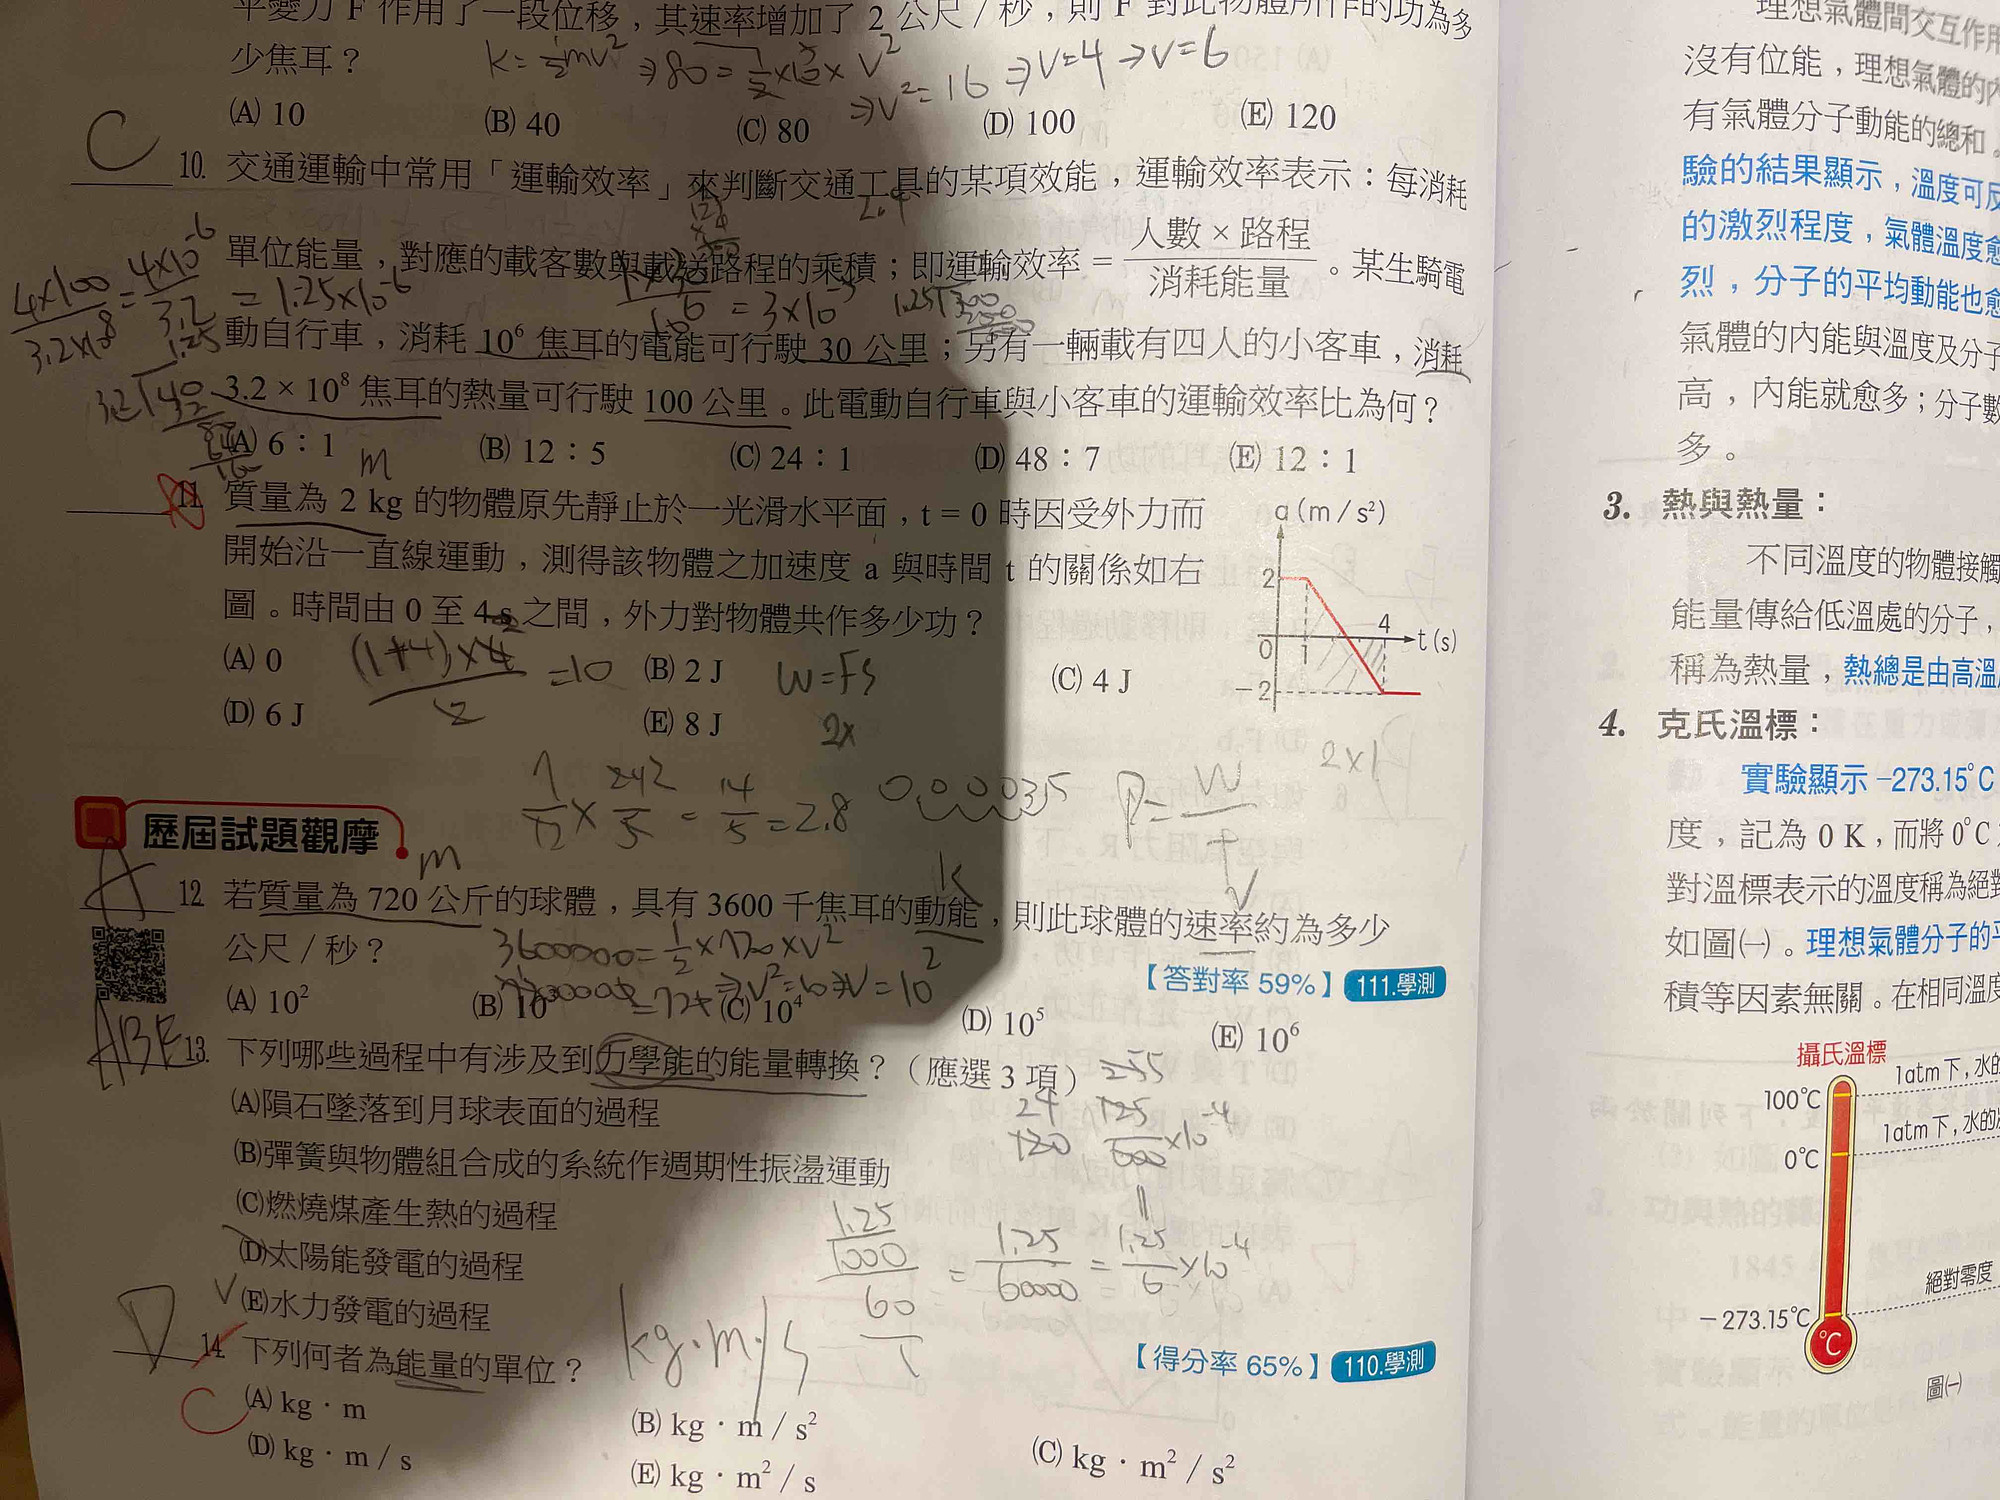 平變力 F 作用了一段位移，其速率增加了 2 公尺／秒，則 F 對此物體所作的功為多
少焦耳？
K=½mv² ⇒80=½×10×V²
⇒V²=16 ⇒V=4 ⇒V=6
(A) 10 (B) 40 (C) 80 (D) 100 (E) 120
C
10. 交通運輸中常用「運輸效率」來判斷交通工具的某項效能，運輸效率表示：每消耗
單位能量，對應的載客數與載送路程的乘積；即運輸效率＝人數×路程／消耗能量。某生騎電
動自行車，消耗 10⁶ 焦耳的電能可行駛 30 公里；另有一輛載有四人的小客車，消耗
3.2 × 10⁸ 焦耳的熱量可行駛 100 公里。此電動自行車與小客車的運輸效率比為何？
4×100/3.2×10⁸ = 4×10⁻⁶/3.2 = 1.25×10⁻⁶
= 3×10⁻⁵
(A) 6：1 (B) 12：5 (C) 24：1 (D) 48：7 (E) 12：1
m
11. 質量為 2 kg 的物體原先靜止於一光滑水平面，t = 0 時因受外力而
開始沿一直線運動，測得該物體之加速度 a 與時間 t 的關係如右
圖。時間由 0 至 4 s 之間，外力對物體共作多少功？
(A) 0 (B) 2 J (C) 4 J
(D) 6 J (E) 8 J
a (m / s²)
2
4
0
1
t (s)
－2
(1+4)×4/2 =10
W=FS
2x
2×1
7/12 × 24/5 = 14/5 = 2.8
0.000035
P=W/t
歷屆試題觀摩
A
m
K
V
12. 若質量為 720 公斤的球體，具有 3600 千焦耳的動能，則此球體的速率約為多少
公尺／秒？
3600000=½×720×V²
⇒V=10²
【答對率 59%】 111.學測
(A) 10² (B) 10³ (C) 10⁴ (D) 10⁵ (E) 10⁶
ABE
13. 下列哪些過程中有涉及到力學能的能量轉換？（應選 3 項）
(A)隕石墜落到月球表面的過程
(B)彈簧與物體組合成的系統作週期性振盪運動
(C)燃燒煤產生熱的過程
(D)太陽能發電的過程
(E)水力發電的過程
1.25/1000/60 = 1.25/60000 = 1.25/6 ×10⁻⁴
【得分率 65%】 110.學測
D
14. 下列何者為能量的單位？
kg·m/s
C
(A) kg．m (B) kg．m / s² (C) kg．m² / s²
(D) kg．m / s (E) kg．m² / s
理想氣體間交互作用
沒有位能，理想氣體的內
有氣體分子動能的總和。
驗的結果顯示，溫度可反
的激烈程度，氣體溫度愈
烈，分子的平均動能也愈
氣體的內能與溫度及分子
高，內能就愈多；分子數
多。
3. 熱與熱量：
不同溫度的物體接觸
能量傳給低溫處的分子，
稱為熱量，熱總是由高溫
4. 克氏溫標：
實驗顯示 –273.15°C
度，記為 0 K，而將 0°C
對溫標表示的溫度稱為絕對
如圖㈠。理想氣體分子的平
積等因素無關。在相同溫度
攝氏溫標
100°C
1atm 下，水的
1atm 下，水的
0°C
絕對零度
－273.15°C
°C
圖㈠